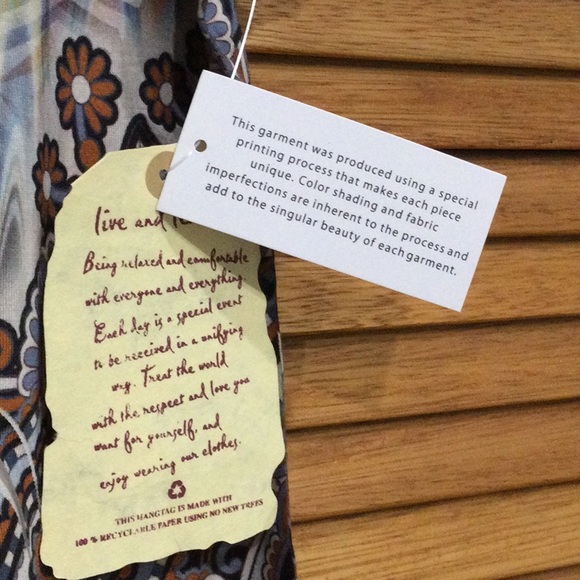 This garment was produced using a special
printing process that makes each piece
unique. Color shading and fabric
imperfections are inherent to the process and
add to the singular beauty of each garment.
live and
Being relaxed and comfortable
with everyone and everything.
Each day is a special event
to be received in a unifying
way. Treat the world
with the respect and love you
want for yourself, and
enjoy wearing our clothes.
THIS HANGTAG IS MADE WITH
100 % RECYCLABLE PAPER USING NO NEW TREES